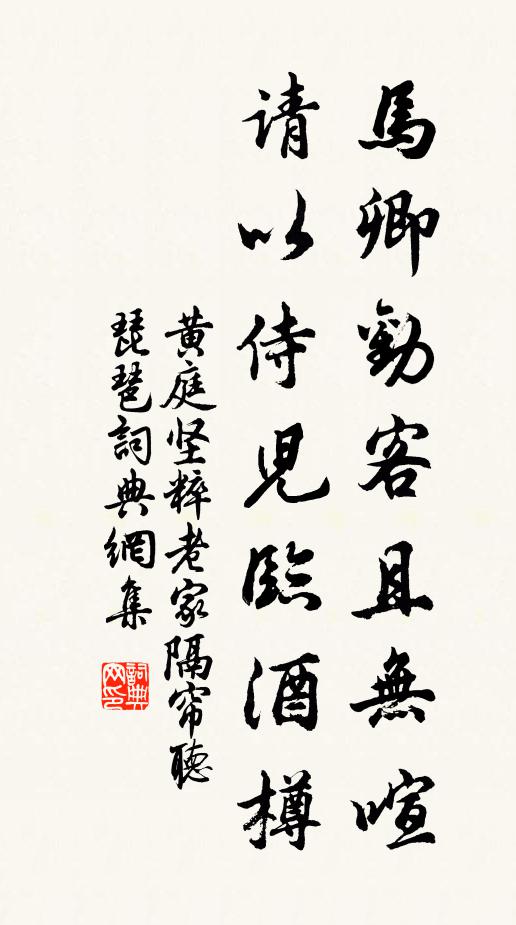 馬卿勸客且無喧
请以侍児臨酒樽
黄庭坚粹老家隔帘聽
琵琶詞典網集
詞典网印